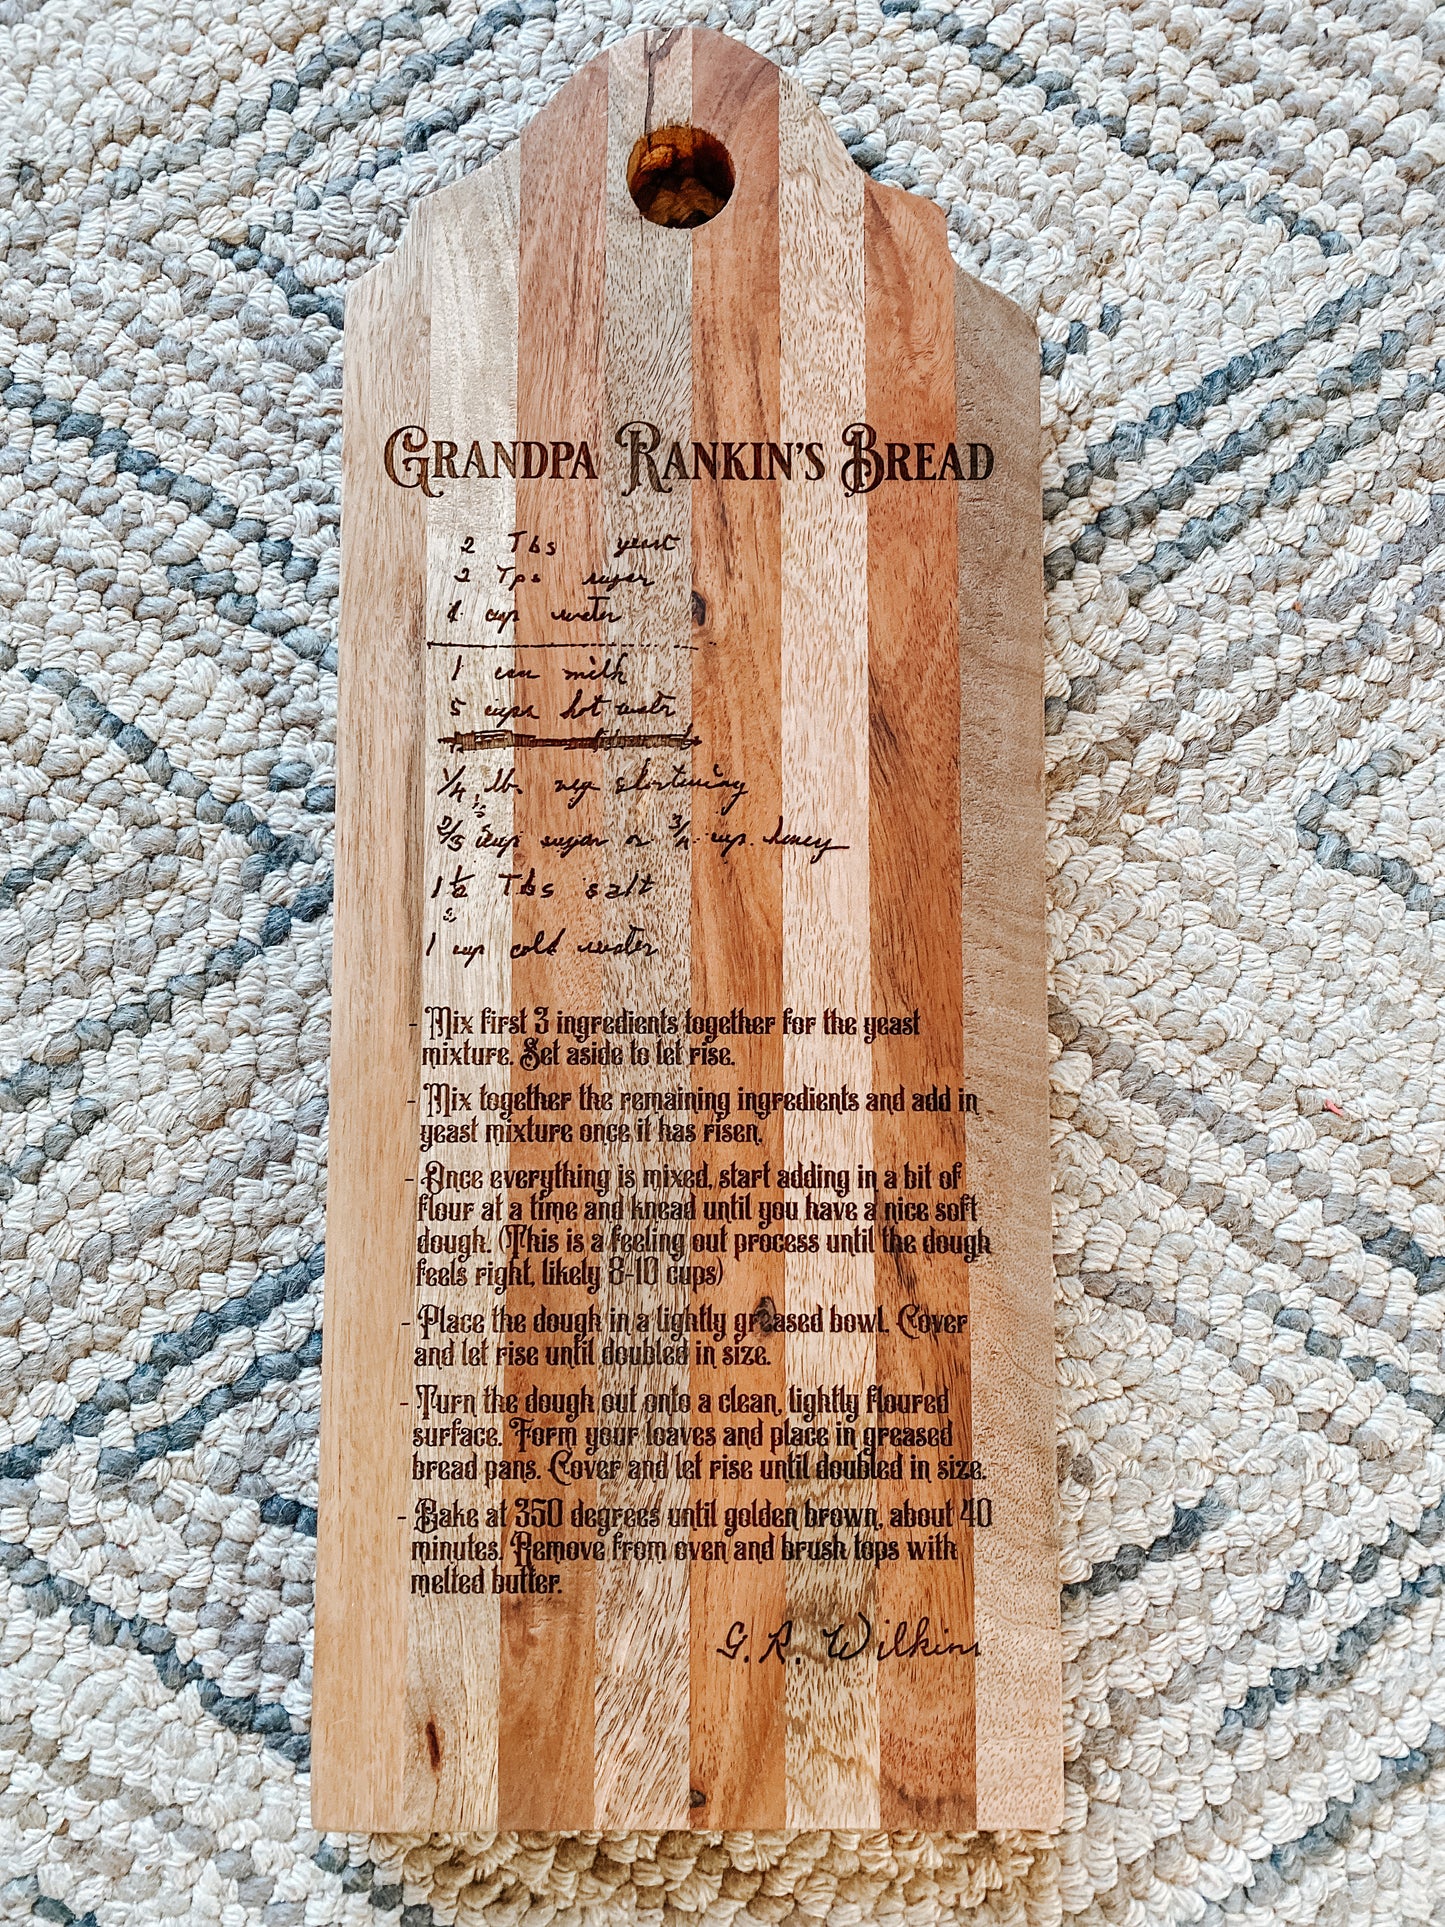 Grandpa Rankin's Bread
2 Tbs yeast
2 Tps sugar
1 cup water
1 can milk
5 cups hot water
1/4 lb. veg shortening
2/3 cup sugar or 3/4 cup. honey
1 1/2 Tbs salt
1 cup cold water
- Mix first 3 ingredients together for the yeast
mixture. Set aside to let rise.
- Mix together the remaining ingredients and add in
yeast mixture once it has risen.
- Once everything is mixed, start adding in a bit of
flour at a time and knead until you have a nice soft
dough. (This is a feeling out process until the dough
feels right, likely 8-10 cups)
- Place the dough in a lightly greased bowl. Cover
and let rise until doubled in size.
- Turn the dough out onto a clean, lightly floured
surface. Form your loaves and place in greased
bread pans. Cover and let rise until doubled in size.
- Bake at 350 degrees until golden brown, about 40
minutes. Remove from oven and brush tops with
melted butter.
G. R. Wilkins